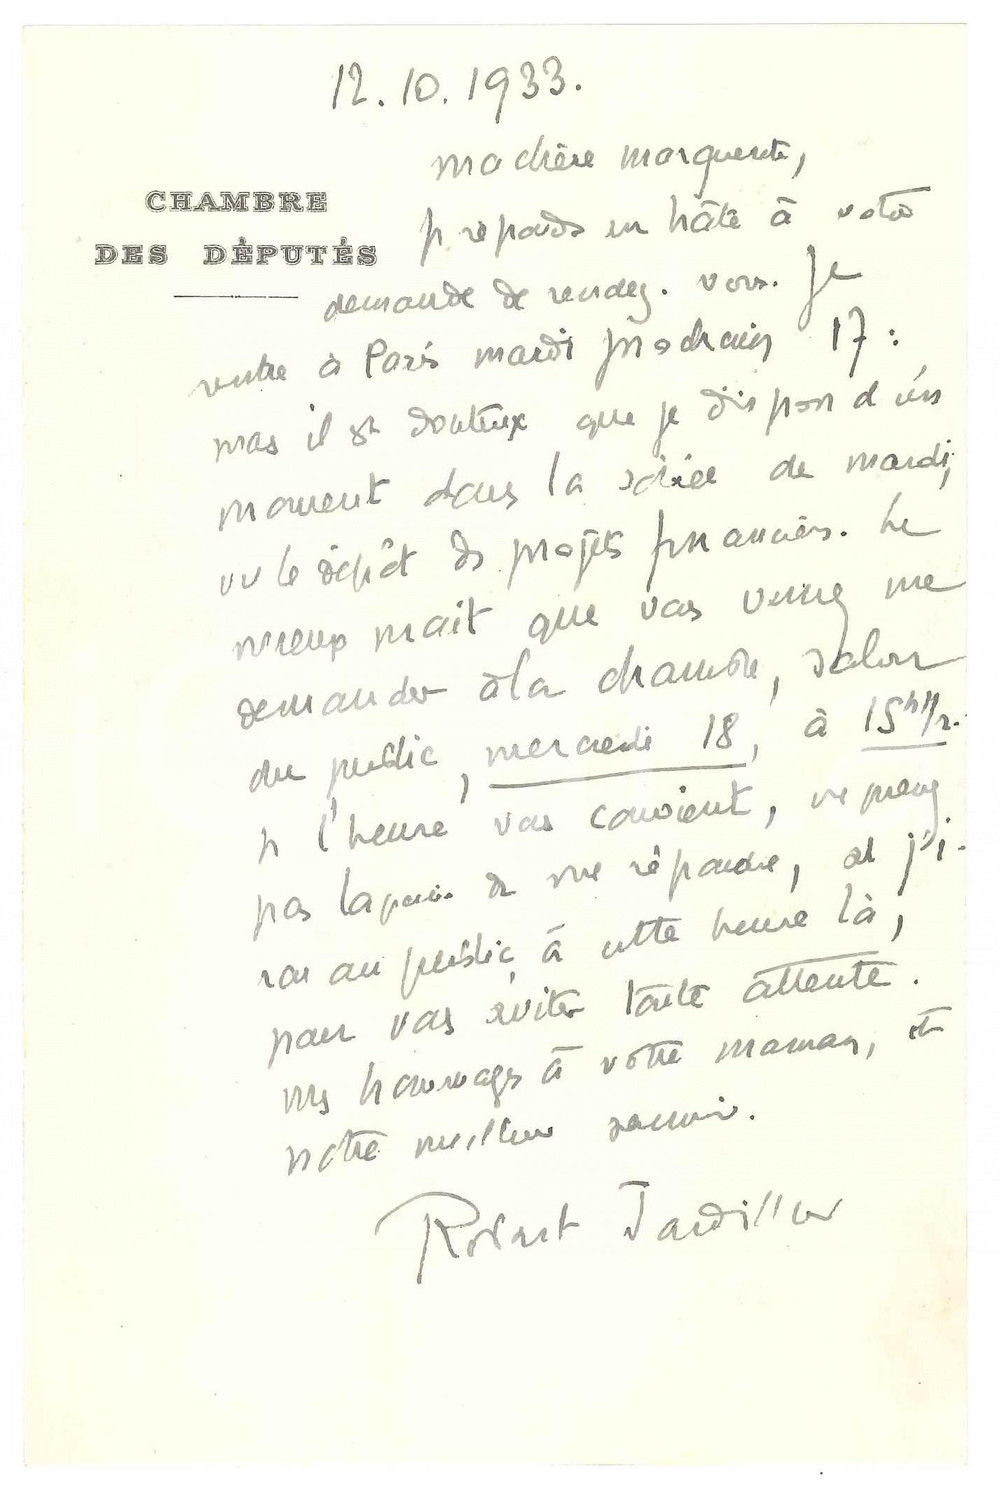 12.10.1933.
Ma chère Marguerite,
CHAMBRE
DES DÉPUTÉS
je réponds en hâte à votre
demande de rendez-vous. Je
rentre à Paris mardi prochain 17 :
mais il est douteux que je dispose d'un
moment dans la soirée de mardi,
vu le dépôt des projets financiers. Le
mieux serait que vous veniez me
demander à la Chambre, salon
du public, mercredi 18, à 15h 1/2.
Si l'heure vous convient, ne prenez
pas la peine de me répondre, et j'i-
rai au public à cette heure là,
pour vous éviter toute attente.
Mes hommages à votre maman, et
notre meilleur souvenir.
Robert Jardillier